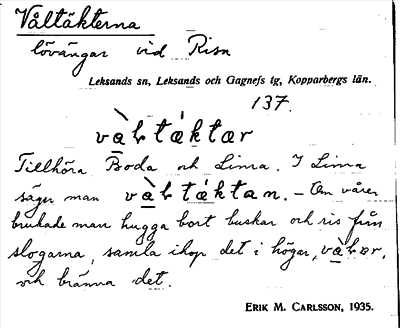 Våltäkterna
lövängar vid Risa
Leksands sn, Leksands och Gagnefs tg, Kopparbergs län.
137.
Tillhöra Boda och Lima. I Lima
säger man – Om våren
brukade man hugga bort buskar och ris från
slogarna, samla ihop det i högar,
och bränna det.
ERIK M. CARLSSON, 1935.